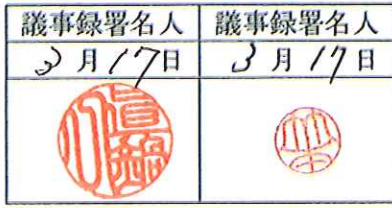 議事録署名人 議事録署名人
3月17日 3月17日